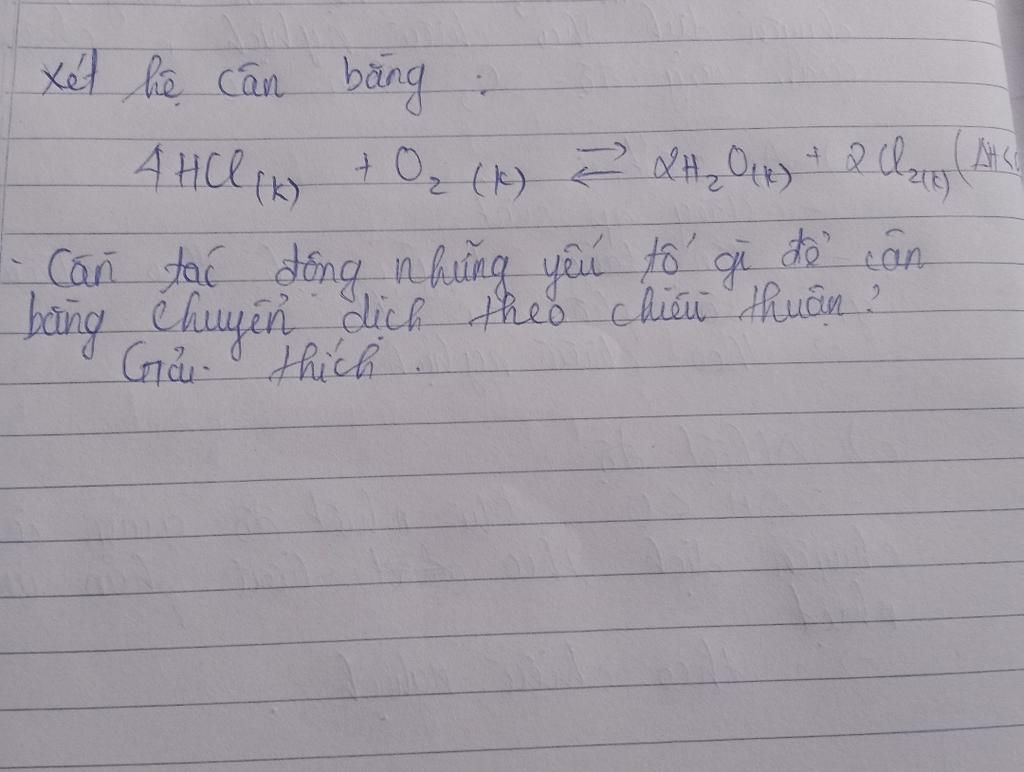 Xét hệ cân bằng :
4HCl(K) + O2 (K) ⇌ 2H2O(K) + 2Cl2(K) (ΔH<
- Cần tác động những yếu tố gì để cân
bằng chuyển dịch theo chiều thuận?
Giải thích.